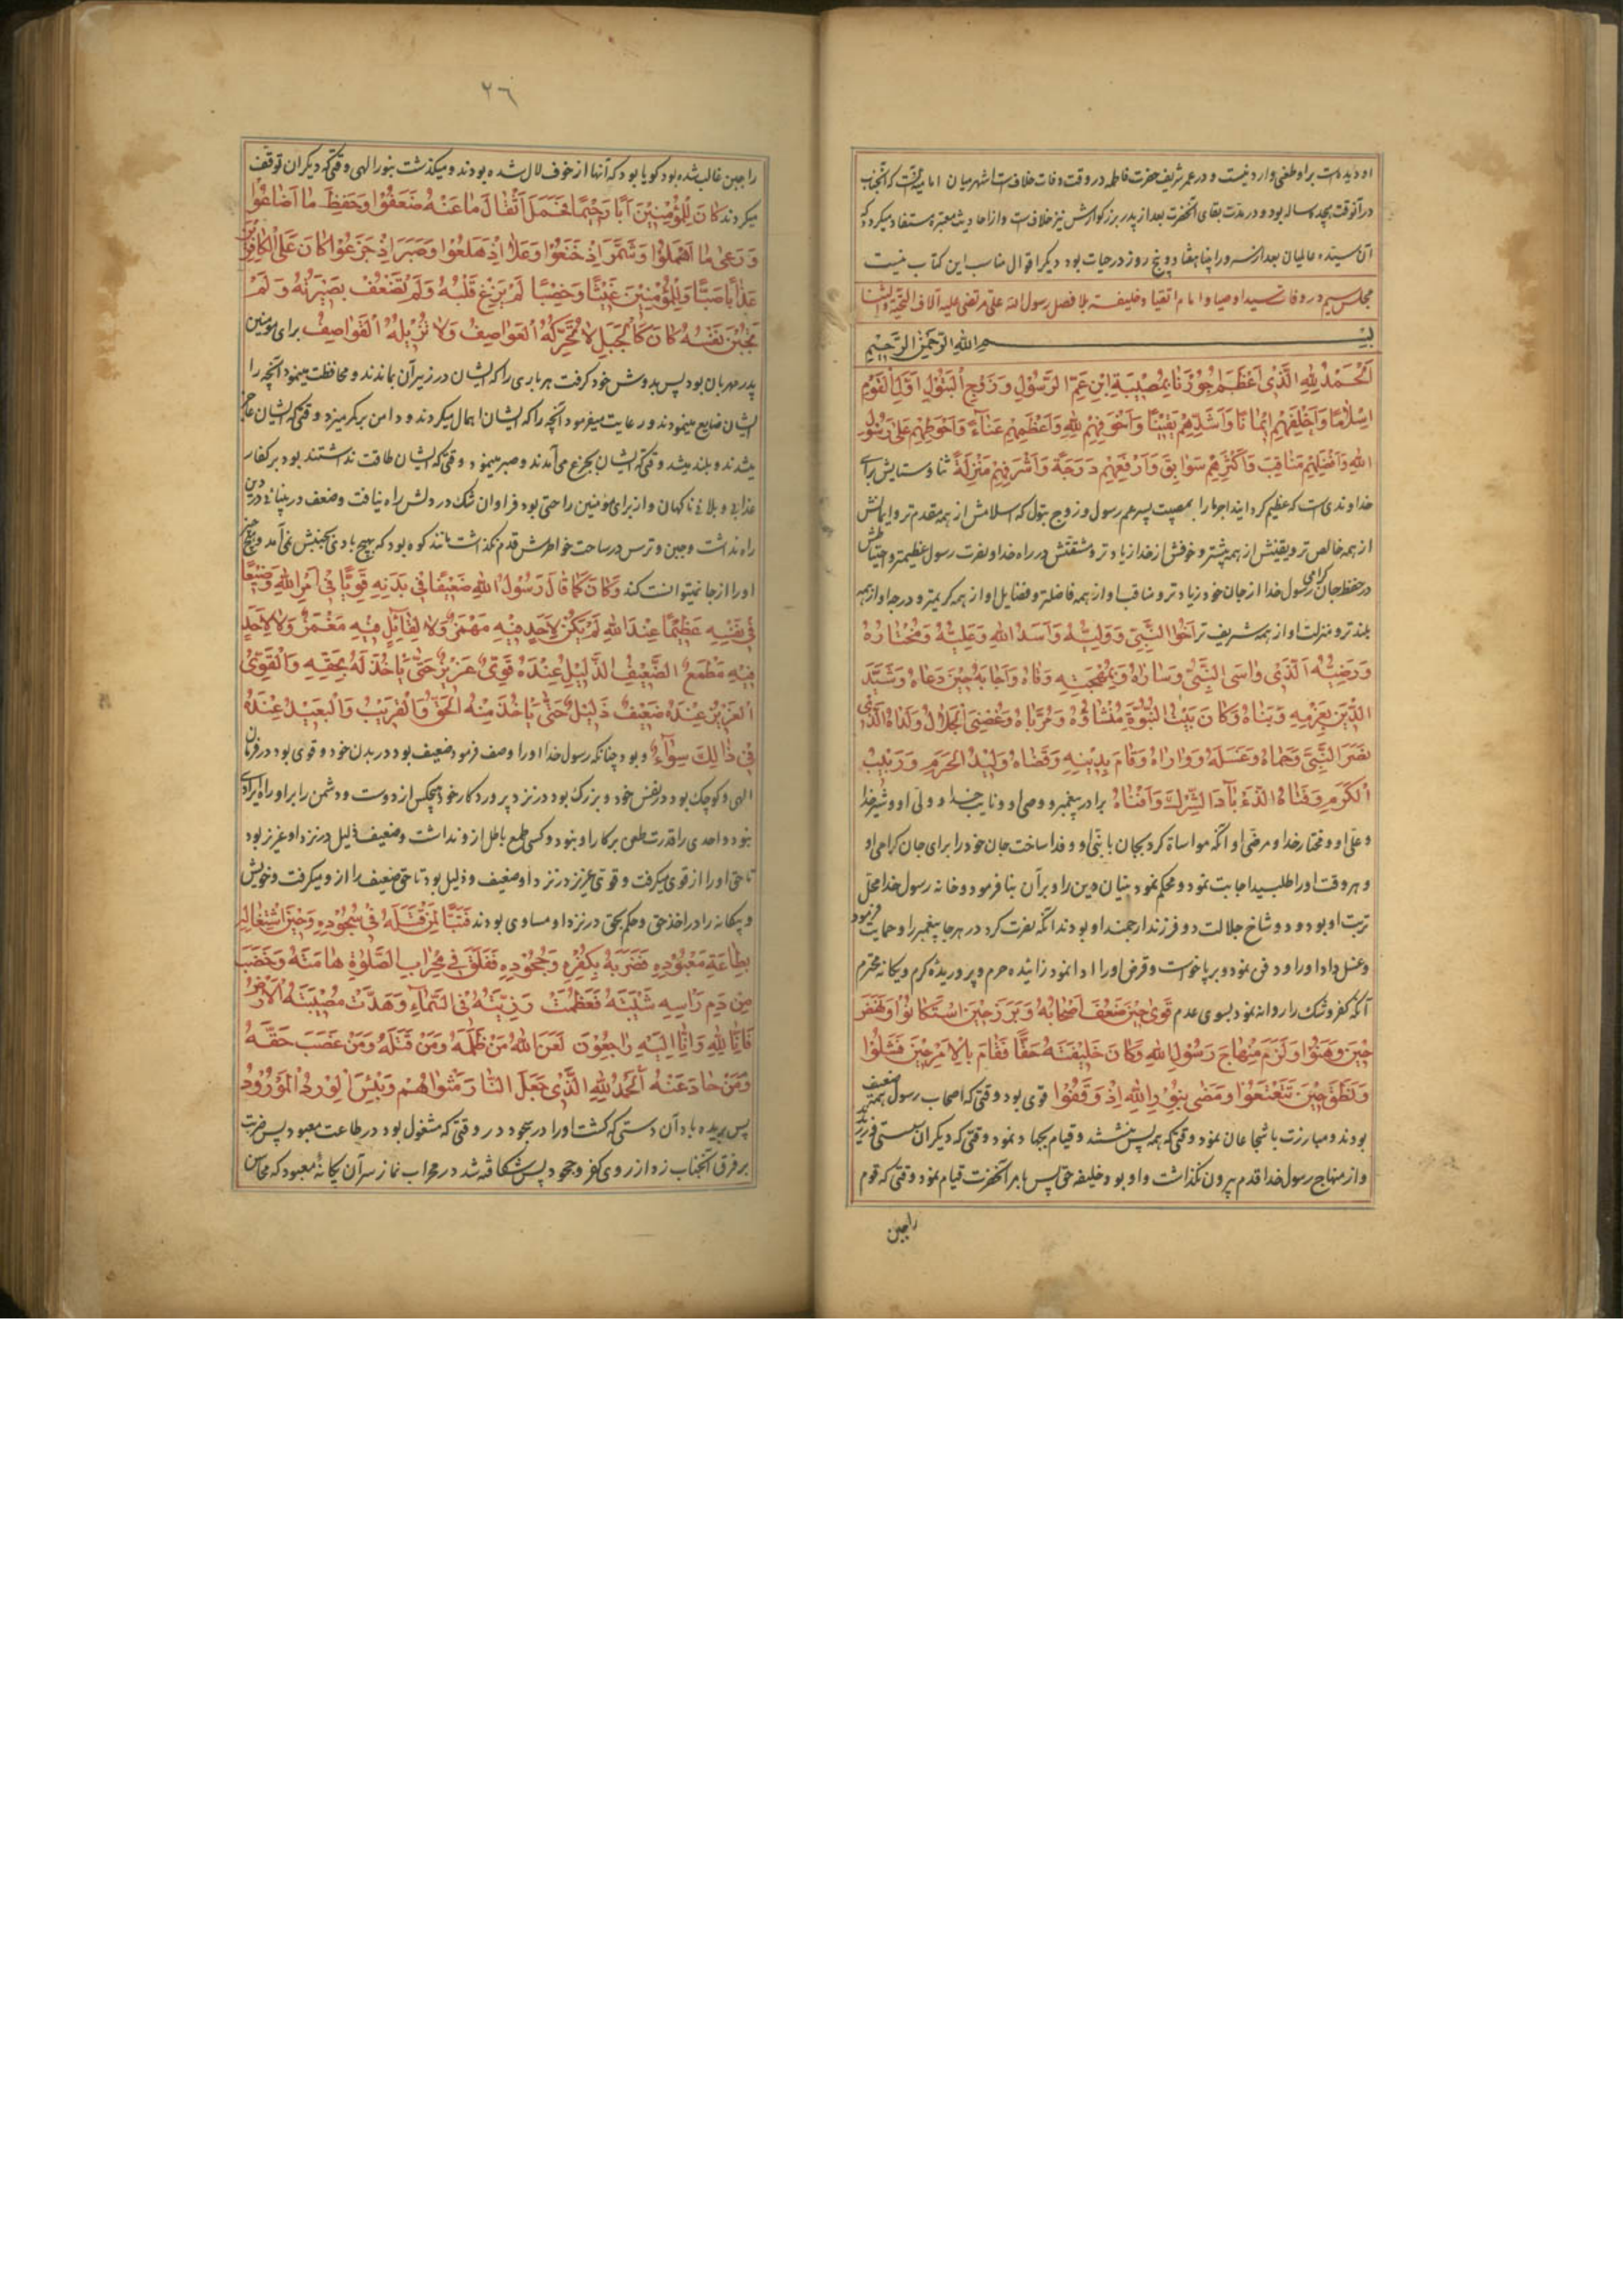 او دیده است براو طغنی وارد نیست و در عمر شریف حضرت فاطمه در وقت وفات خلافست اشهر میان امامیه آنست که آنجناب
در آنوقت هجده ساله بود و در مدت بقای آنحضرت بعد از پدر بزرگوارش نیز خلافست و از احادیث معتبره مستفاد میگردد که
آن سیده عالمیان بعد از سرور انبیا هفتاد و پنج روز در حیات بود دیگر اقوال مناسب این کتاب نیست
مجلس سیم در وفات سید اوصیا و امام اتقیا و خلیفه بلا فصل رسول الله علی مرتضی علیه آلاف التحیة و الثنا
بسم الله الرحمن الرحیم
اَلْحَمْدُ لِلّهِ الَّذی اَعْظَمَ اُجُورَنا بِمُصیبَةِ ابْنِ عَمِّ الرَّسُولِ وَ زَوْجِ الْبَتُولِ اَوَّلِ الْقَوْمِ
اِسْلامًا وَ اَخْلَصِهِمْ ایمانًا وَ اَشَدِّهِمْ یَقینًا وَ اَخْوَفِهِمْ لِلّهِ وَ اَعْظَمِهِمْ عَناءً وَ اَحْوَطِهِمْ عَلی رَسُولِ
اللهِ وَ اَفْضَلِهِمْ مَناقِبَ وَ اَکْثَرِهِمْ سَوابِقَ وَ اَرْفَعِهِمْ دَرَجَةً وَ اَشْرَفِهِمْ مَنْزِلَةً ثنا و ستایش برای
خداوندی است که عظیم گردانید اجرهای ما را بمصیبت پسر عم رسول و زوج بتول که اسلامش از همه مقدم تر و ایمانش
از همه خالص تر و یقینش از همه بیشتر و خوفش از خدا زیادتر و مشقتش در راه خدا و نصرت رسول عظیمتر و احتیاطش
در حفظ جان گرامی رسول خدا از جان خود زیادتر و مناقب او از همه فاضلتر و فضایل او از همه کریمتر و درجه او از همه
بلندتر و منزلت او از همه شریف تر اَخُوا النَّبِیِّ وَ وَلِیُّهُ وَ اَسَدُ اللهِ وَ عَلِیُّهُ وَ مُخْتارُهُ
وَ رَضِیُّهُ اَلَّذی واسَی النَّبِیَّ وَ ساراهُ وَ بِمُهْجَتِهِ وَقاهُ وَ اَجابَهُ حینَ دَعاهُ وَ شَیَّدَ
الدّینَ بِعَزْمِهِ وَ بَناهُ وَ کانَ بَیْتُ النُّبُوَّةِ مُنْشاؤُهُ وَ مُرَبّاهُ وَ غُصْنَی الْجَلالِ وَلَداهُ الَّذی
نَصَرَ النَّبِیَّ وَ حَماهُ وَ غَسَلَهُ وَ واراهُ وَ قامَ بِدَیْنِهِ وَ قَضاهُ وَلیدُ الْحَرَمِ وَ رَبیبُ
الْکَرَمِ وَ فَتاهُ الَّذی بادَ الشِّرْکَ وَ اَفْناهُ برادر پیغمبر و وصی او و نایب خدا و ولی او و شیر خدا
و علی او و مختار خدا و مرضی او آنکه مواساة کرد بجان با نبی او و فدا ساخت جان خود را برای جان گرامی او
و هر وقت او را طلبید اجابت نمود و محکم نمود بنیان دین را و بر آن بنا فرمود و خانه رسول خدا محل
تربیت او بود و دو شاخ جلالت دو فرزند ارجمند او بودند آنکه نصرت کرد در هر جا پیغمبر را و حمایت فرمود
و غسل داد او را و دفن نمود و برپا خواست و قرض او را ادا نمود زائیده حرم و پروریده کرم و یگانه محترم
آنکه کفر و شک را روانه نمود بسوی عدم قَوِیَ حینَ ضَعُفَ اَصْحابُهُ وَ بَرَزَ حینَ اسْتَکانُوا وَ نَهَضَ
حینَ وَهَنُوا وَ لَزِمَ مِنْهاجَ رَسُولِ اللهِ وَ کانَ خَلیفَتَهُ حَقًّا فَقامَ بِالْاَمْرِ حینَ فَشِلُوا
وَ نَطَقَ حینَ تَتَعْتَعُوا وَ مَضی بِنُورِ اللهِ اِذْ وَقَفُوا قوی بود وقتی که اصحاب رسول همه ضعیف
بودند و مبارزت با شجاعان نمود وقتیکه همه پس نشستند و قیام بجهاد نمود وقتی که دیگران سستی ورزیدند
و از منهاج رسول خدا قدم بیرون نگذاشت و او بود خلیفه حق پس بامر آنحضرت قیام نمود وقتی که قوم
را جبن
۲۶
را جبن غالب شده بود گویا بود که آنها از خوف لال شده بودند و میگذشت بنور الهی وقتی که دیگران توقف
میکردند کانَ لِلْمُؤْمِنینَ اَبًا رَحیمًا فَحَمَلَ اَثْقالَ ما عَنْهُ ضَعُفُوا وَ حَفِظَ ما اَضاعُوا
وَ رَعی ما اَهْمَلُوا وَ شَمَّرَ اِذْ خَنَعُوا وَ عَلا اِذْ هَلَعُوا وَ صَبَرَ اِذْ جَزَعُوا کانَ عَلَی الْکافِرینَ
عَذابًا صَبًّا وَ لِلْمُؤْمِنینَ غَیْثًا وَ خِصْبًا لَمْ یَزِغْ قَلْبُهُ وَ لَمْ تَضْعُفْ بَصیرَتُهُ وَ لَمْ
تَجْبُنْ نَفْسُهُ کانَ کَالْجَبَلِ لا تُحَرِّکُهُ الْعَواصِفُ وَ لا تُزیلُهُ الْقَواصِفُ برای مؤمنین
پدر مهربان بود پس بدوش خود گرفت هر باری را که ایشان در زیر آن بماندند و محافظت مینمود آنچه را
ایشان ضایع مینمودند و رعایت میفرمود آنچه را که ایشان اهمال میکردند و دامن بر کمر میزد وقتی که ایشان عاجز
میشدند و بلند میشد وقتی که ایشان بجزع می آمدند و صبر مینمود وقتی که ایشان طاقت نداشتند بود بر کفار
عذابی و بلائی ناگهان و از برای مؤمنین راحتی بود فراوان شک در دلش راه نیافت و ضعف در بینائی دین
راه نداشت و جبن و ترس در ساحت خواطرش قدم نگذاشت مانند کوه بود که بهیچ بادی بجنبش نمی آمد و هیچ
او را از جا نمیتوانست کند وَ کانَ کَما قالَ رَسُولُ اللهِ ضَعیفًا فی بَدَنِهِ قَوِیًّا فی اَمْرِ اللهِ وَضیعًا
فی نَفْسِهِ عَظیمًا عِنْدَ اللهِ لَمْ یَکُنْ لِاَحَدٍ فیهِ مَهْمَزٌ وَ لا لِقائِلٍ فیهِ مَغْمَزٌ وَ لا لِاَحَدٍ
فیهِ مَطْمَعٌ الضَّعیفُ الذَّلیلُ عِنْدَهُ قَوِیٌّ عَزیزٌ حَتّی یَاْخُذَ لَهُ بِحَقِّهِ وَ الْقَوِیُّ
الْعَزیزُ عِنْدَهُ ضَعیفٌ ذَلیلٌ حَتّی یَاْخُذَ مِنْهُ الْحَقَّ وَ الْقَریبُ وَ الْبَعیدُ عِنْدَهُ
فی ذالِکَ سَواءٌ و بود چنانکه رسول خدا او را وصف فرمود ضعیف بود در بدن خود و قوی بود در فرمان
الهی و کوچک بود در نفس خود و بزرگ بود در نزد پروردگار خود هیچکس از دوست و دشمن را بر او راه ایرادی
نبود و احدی را قدرت طعن بر کار او نبود و کسی طمع باطل از او نداشت و ضعیف ذلیل در نزد او عزیز بود
تا حق او را از قوی میگرفت و قوی عزیز در نزد او ضعیف و ذلیل بود تا حق ضعیف را از او میگرفت و خویش
و بیگانه را در اخذ حق و حکم بحق در نزد او مساوی بودند فَتَبًّا لِمَنْ قَتَلَهُ فی سُجُودِهِ وَ حینَ اشْتِغالِهِ
بِطاعَةِ مَعْبُودِهِ فَضَرَبَهُ بِکُفْرِهِ وَ جُحُودِهِ فَفَلَقَ فی مِحْرابِ الصَّلوةِ هامَتَهُ وَ خَضَبَ
مِنْ دَمِ رَاْسِهِ شَیْبَتَهُ فَعَظُمَتْ رَزِیَّتُهُ فِی السَّماءِ وَ هَدَّتْ مُصیبَتُهُ الْاَرْضَ
فَاِنّا لِلّهِ وَ اِنّا اِلَیْهِ راجِعُونَ لَعَنَ اللهُ مَنْ ظَلَمَهُ وَ مَنْ قَتَلَهُ وَ مَنْ غَصَبَ حَقَّهُ
وَ مَنْ حادَ عَنْهُ اَلْحَمْدُ لِلّهِ الَّذی جَعَلَ النّارَ مَثْواهُمْ وَ بِئْسَ الْوِرْدُ الْمَوْرُودُ
پس بریده باد آن دستی که کشت او را در سجود در وقتی که مشغول بود در طاعت معبود پس ضربت
بر فرق آنجناب زد از روی کفر و جحود پس شکافته شد در محراب نماز سر آن یگانهٔ معبود که محاسن